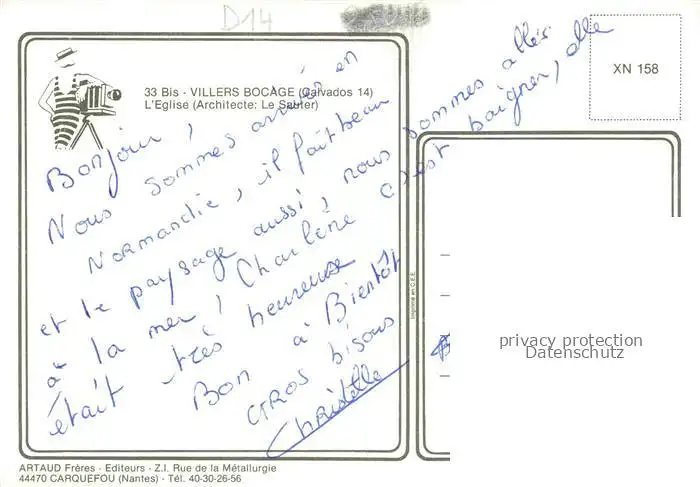 D14
33 Bis - VILLERS BOCAGE (Calvados 14)
L'Eglise (Architecte: Le Sauter)
XN 158
Bonjour,
Nous sommes arrivés en
Normandie, il fait beau
et le paysage aussi, nous sommes allés
à la mer, Charlène c'est baigner, elle
était très heureuse
Bon à Bientôt
Gros bisous
Christelle
Imprimé en C.E.E.
privacy protection
Datenschutz
ARTAUD Frères - Editeurs - Z.I. Rue de la Métallurgie
44470 CARQUEFOU (Nantes) - Tél. 40-30-26-56